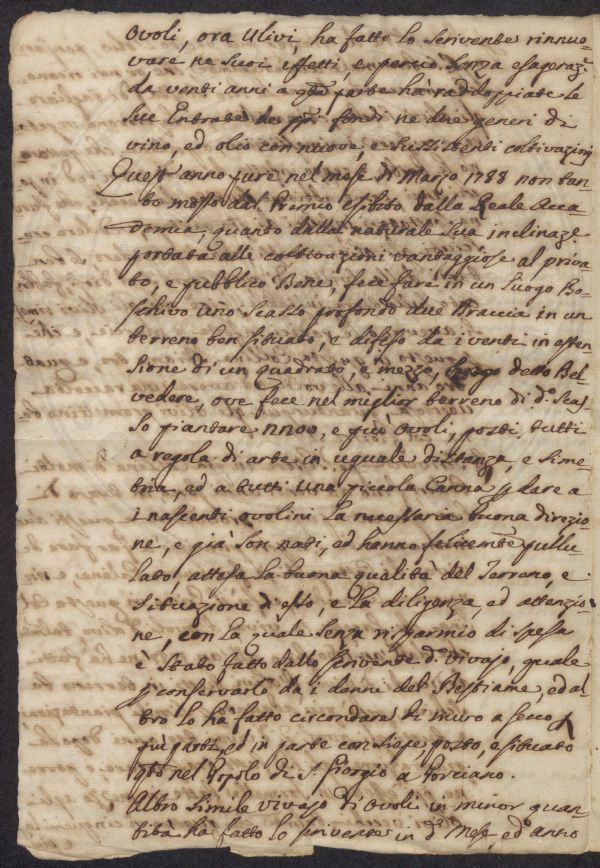 Ovoli, ora Ulivi, ha fatto lo scrivente rinnuo-
vare ne suoi effetti, e perciò senza esageraz.e
da venti anni a q.ta parte ha raddoppiate le
sue Entrate de fondi ne due generi di
vino, ed olio con nuove, e sussistenti coltivazioni
Quest'anno pure nel mese di Marzo 1788 non tan-
to mosso dal Premio esibito dalla Reale Acca
demia, quanto dalla naturale sua inclinaz.e
portata alle coltivazioni vantaggiose al priva
to, e pubblico Bene, fece fare in un Luogo Bo-
schivo uno scasso profondo due Braccia in un
terreno ben situato, e difeso da i venti in esten-
sione di un quadrato, e mezzo, luogo detto Bel-
vedere, ove fece nel miglior terreno di d.o scas-
so piantare n 1100, e più ovoli, posti tutti
a regola di arte in uguale distanza, e sime-
tria, ed a tutti una piccola Canna p dare a
i nascenti ovolini la necessaria buona direzio
ne, e già son nati, ed hanno felicem.te pullu
lato, attesa la buona qualità del Terreno, e
situazione di esso, e la diligenza, ed attenzio-
ne, con la quale senza risparmio di spesa
è stato fatto dallo scrivente d.o vivajo, quale
p conservarlo da i danni del Bestiame, ed al
tro lo ha fatto circondare di muro a secco
più parti, ed in parte con siepe, posto, e situato
q.to nel Popolo di S. Giorgio a Porciano.
Altro simile vivajo di ovoli in minor quan
tità ha fatto lo scrivente in d.o Mese, ed anno